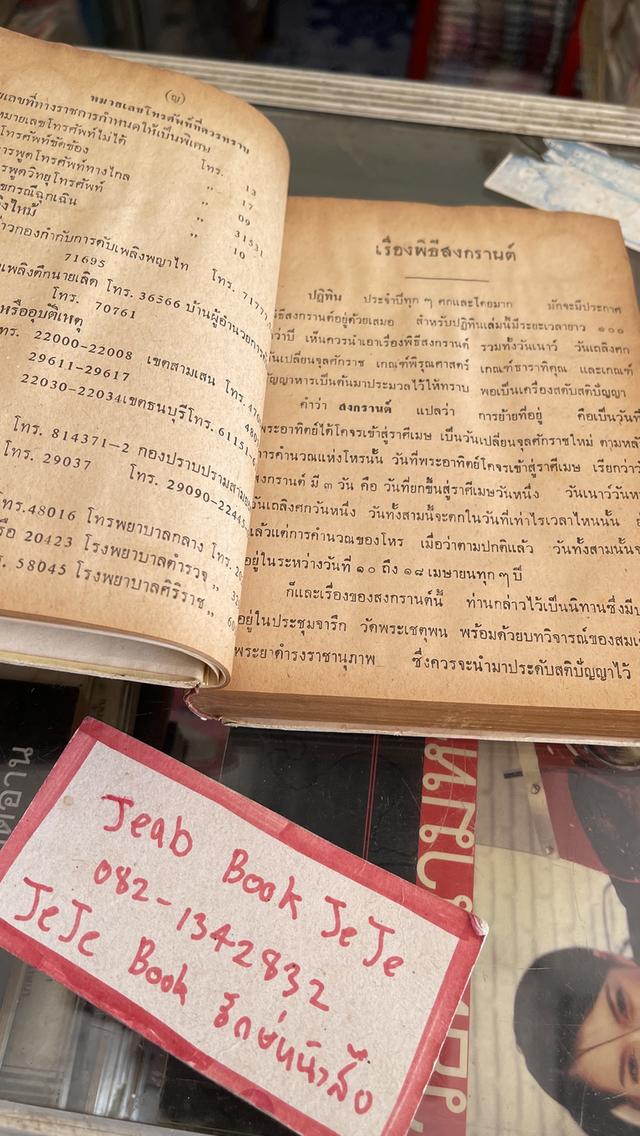 (ญ)
หมายเลขโทรศัพท์ที่ควรทราบ
เลขที่ทางราชการกำหนดให้เป็นพิเศษ
หมายเลขโทรศัพท์ไม่ได้ โทร. 13
โทรศัพท์ขัดข้อง " 17
การพูดโทรศัพท์ทางไกล " 09
การพูดวิทยุโทรศัพท์ " 31531
กรณีฉุกเฉิน " 10
กองกำกับการดับเพลิงพญาไท โทร.
71695
เพลิงตึกนายเลิด โทร. 36566 บ้านผู้อำนวยการ
โทร. 70761
หรืออุบัติเหตุ
22000-22008 เขตสามเสน โทร.
29611-29617
22030-22034 เขตธนบุรี โทร.
โทร. 814371-2 กองปราบปราม
โทร. 29037 โทร. 29090-
โทร.48016 โทรพยาบาลกลาง โทร.
20423 โรงพยาบาลตำรวจ "
58045 โรงพยาบาลศิริราช "
เรื่องพิธีสงกรานต์
ปฏิทิน ประจำปีทุก ๆ ศกและโดยมาก มักจะมีประกาศ
สงกรานต์อยู่ด้วยเสมอ สำหรับปฏิทินเล่มนี้มีระยะเวลายาว ๑๐๐
ว่าปี เห็นควรนำเอาเรื่องพิธีสงกรานต์ รวมทั้งวันเนาว์ วันเถลิงศก
วันเปลี่ยนจุลศักราช เกณฑ์พิรุณศาสตร์ เกณฑ์ธาราทิคุณ และเกณฑ์
ธัญญาหารเป็นต้นมาประมวลไว้ให้ทราบ พอเป็นเครื่องสดับสติปัญญา
คำว่า สงกรานต์ แปลว่า การย้ายที่อยู่ คือเป็นวันที่
พระอาทิตย์ได้โคจรเข้าสู่ราศีเมษ เป็นวันเปลี่ยนจุลศักราชใหม่ ตามหลัก
การคำนวณแห่งโหรนั้น วันที่พระอาทิตย์โคจรเข้าสู่ราศีเมษ เรียกว่า
สงกรานต์ มี ๓ วัน คือ วันที่ยกขึ้นสู่ราศีเมษวันหนึ่ง วันเนาว์วัน
วันเถลิงศกวันหนึ่ง วันทั้งสามนี้จะตกในวันที่เท่าไรเวลาไหนนั้น
แล้วแต่การคำนวณของโหร เมื่อว่าตามปกติแล้ว วันทั้งสามนั้น
อยู่ในระหว่างวันที่ ๑๐ ถึง ๑๘ เมษายนทุก ๆ ปี
ก็และเรื่องของสงกรานต์นี้ ท่านกล่าวไว้เป็นนิทานซึ่งมี
อยู่ในประชุมจารึก วัดพระเชตุพน พร้อมด้วยบทวิจารณ์ของสมเด็จ
พระยาดำรงราชานุภาพ ซึ่งควรจะนำมาประดับสติปัญญาไว้
Jeab Book JeJe
082-1342832
JeJe Book รักษ์หนังสือ